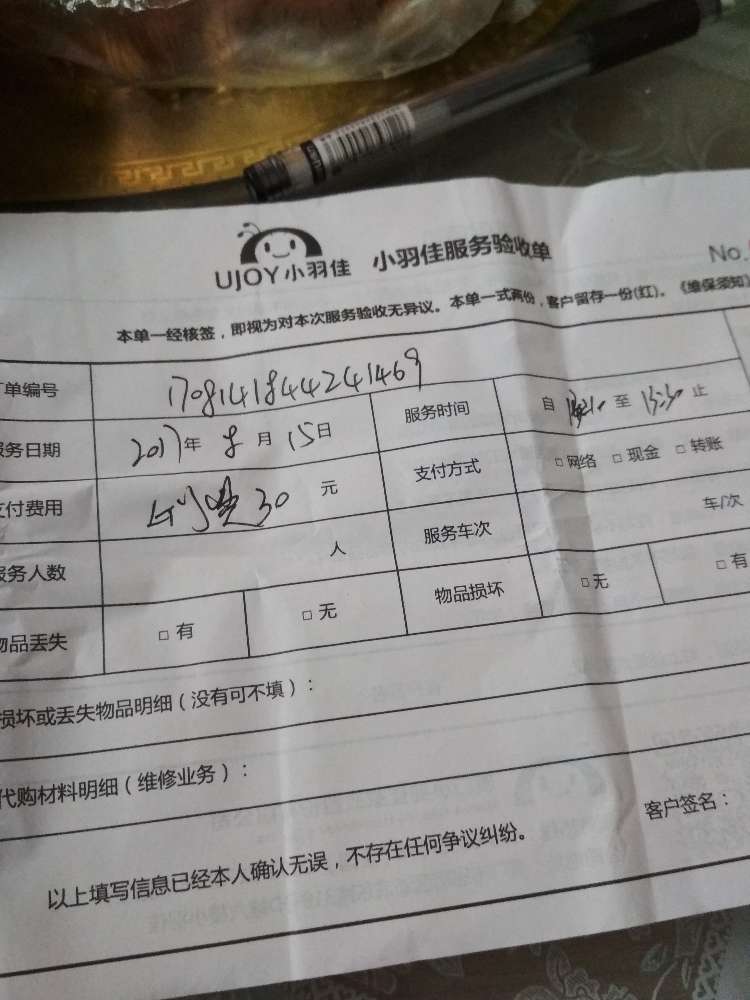 UJOY小羽佳 小羽佳服务验收单
No.
本单一经核签，即视为对本次服务验收无异议。本单一式两份，客户留存一份(红)。《维保须知》
单编号 1708141844241469
务日期 2017年 8月 15日 服务时间 自 至 13:30 止
付费用 30元 支付方式 □网络 □现金 □转账
服务人数 人 服务车次 车/次
物品丢失 □有 □无 物品损坏 □无 □有
损坏或丢失物品明细（没有可不填）：
代购材料明细（维修业务）：
以上填写信息已经本人确认无误，不存在任何争议纠纷。 客户签名：